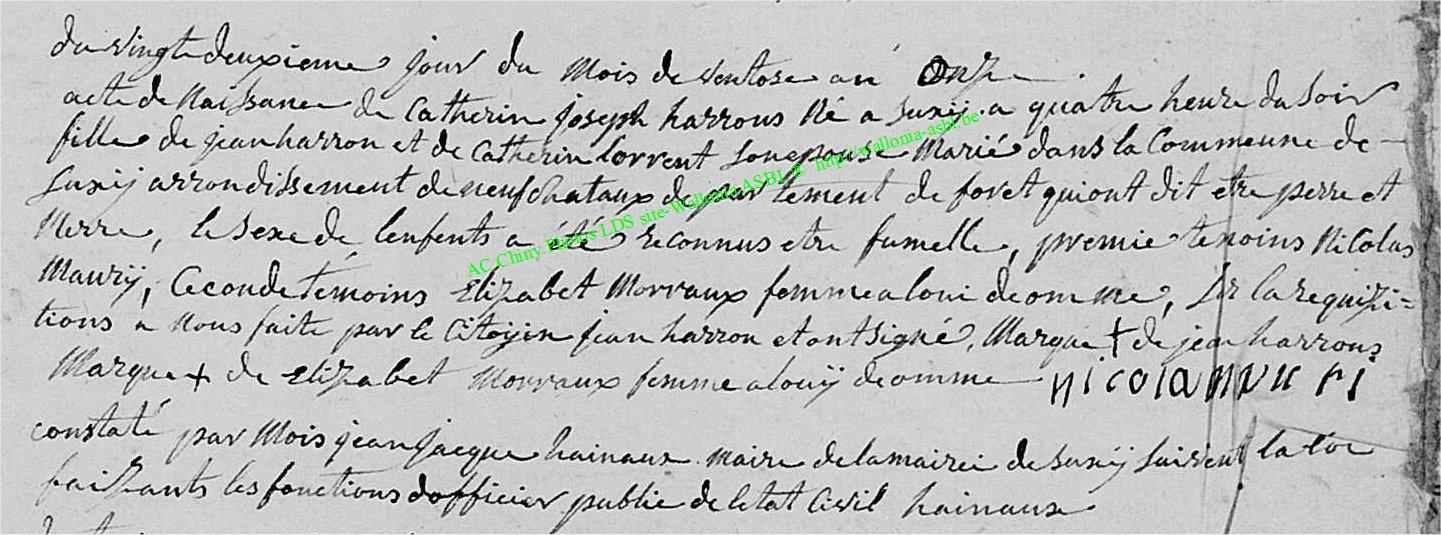 du vingtedeuxieme jour du Mois de ventose an Onze
acte de Naissance de Catherin joseph harrous Né a Suxÿ a quatre heure du Soir
fille de jean harron et de Catherin Lorrent Son epouse Marié dans la Commeune de
Suxiÿ arrondissement de neufchataux departement de foret qui ont dit etre perre et
Merre, le sexe de lenfents a été reconnus etre fumelle, premie temoins Nicolas
Maurÿ, Ceconde temoins Elizabet Morvaux femme a loui deomme, Sur la requizi=
tions a Nous faite par le Citoyin jean harron et ont Signé, Marque + de jean harrous
Marque + de Elizabet Morvaux femme a louÿ deomme nicola
constaté par Mois jean jacque hainaux maire de la mairei de Suxÿ Suivent la loi
faizants les fonctions dofficier public de letat Civil hainaux
AC Chiny Photos LDS site-Walloma ASBL © http://walloma-asbl.be